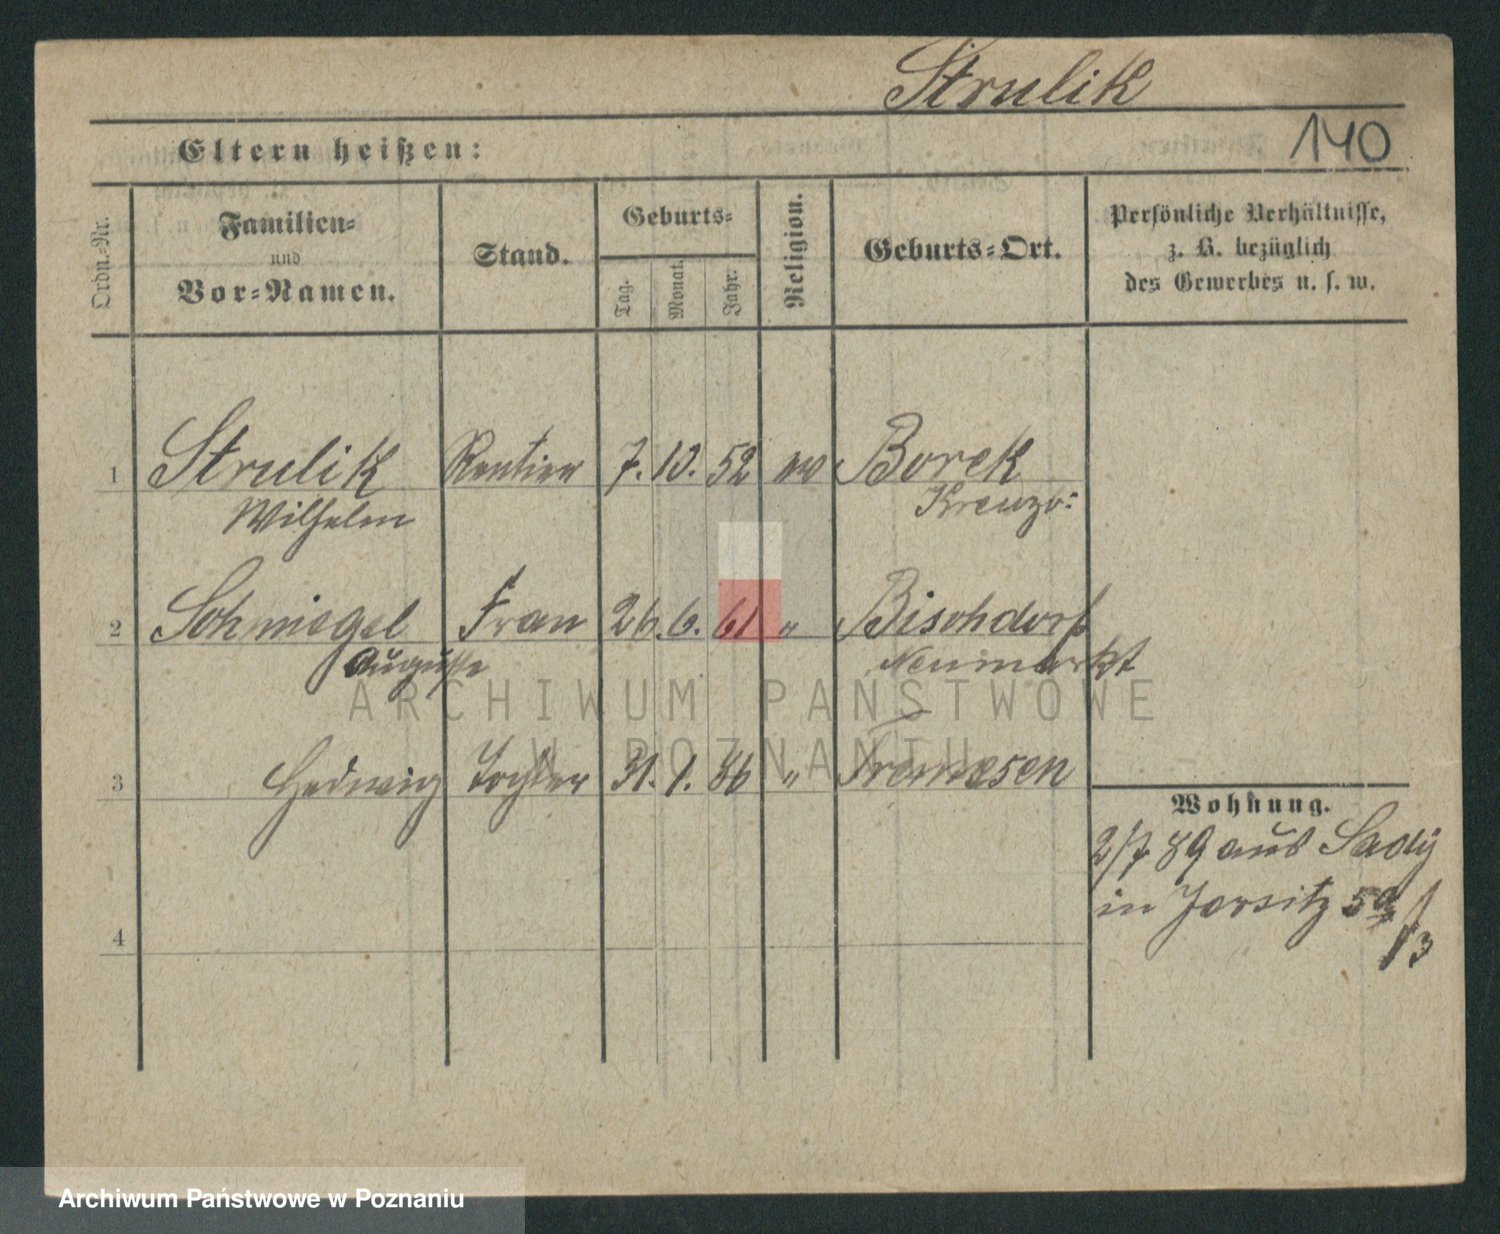 Strulik
140
Eltern heißen:
Ordn.-Nr.
Familien-
und
Vor-Namen.
Stand.
Geburts-
Tag.
Monat.
Jahr.
Religion.
Geburts-Ort.
Persönliche Verhältnisse,
z. B. bezüglich
des Gewerbes u. s. w.
1 Strulik Rentier 7. 10. 52 ew Borek
Wilhelm
2 Schmiegel Frau 26. 6. 61 " Bischdorf
Auguste Neumarkt
3 Hedwig Tochter 31. 1. 86 " Tremesen
Wohnung.
2/7 89 aus Sady
in Jersitz
4
ARCHIWUM PAŃSTWOWE
W POZNANIU
Archiwum Państwowe w Poznaniu